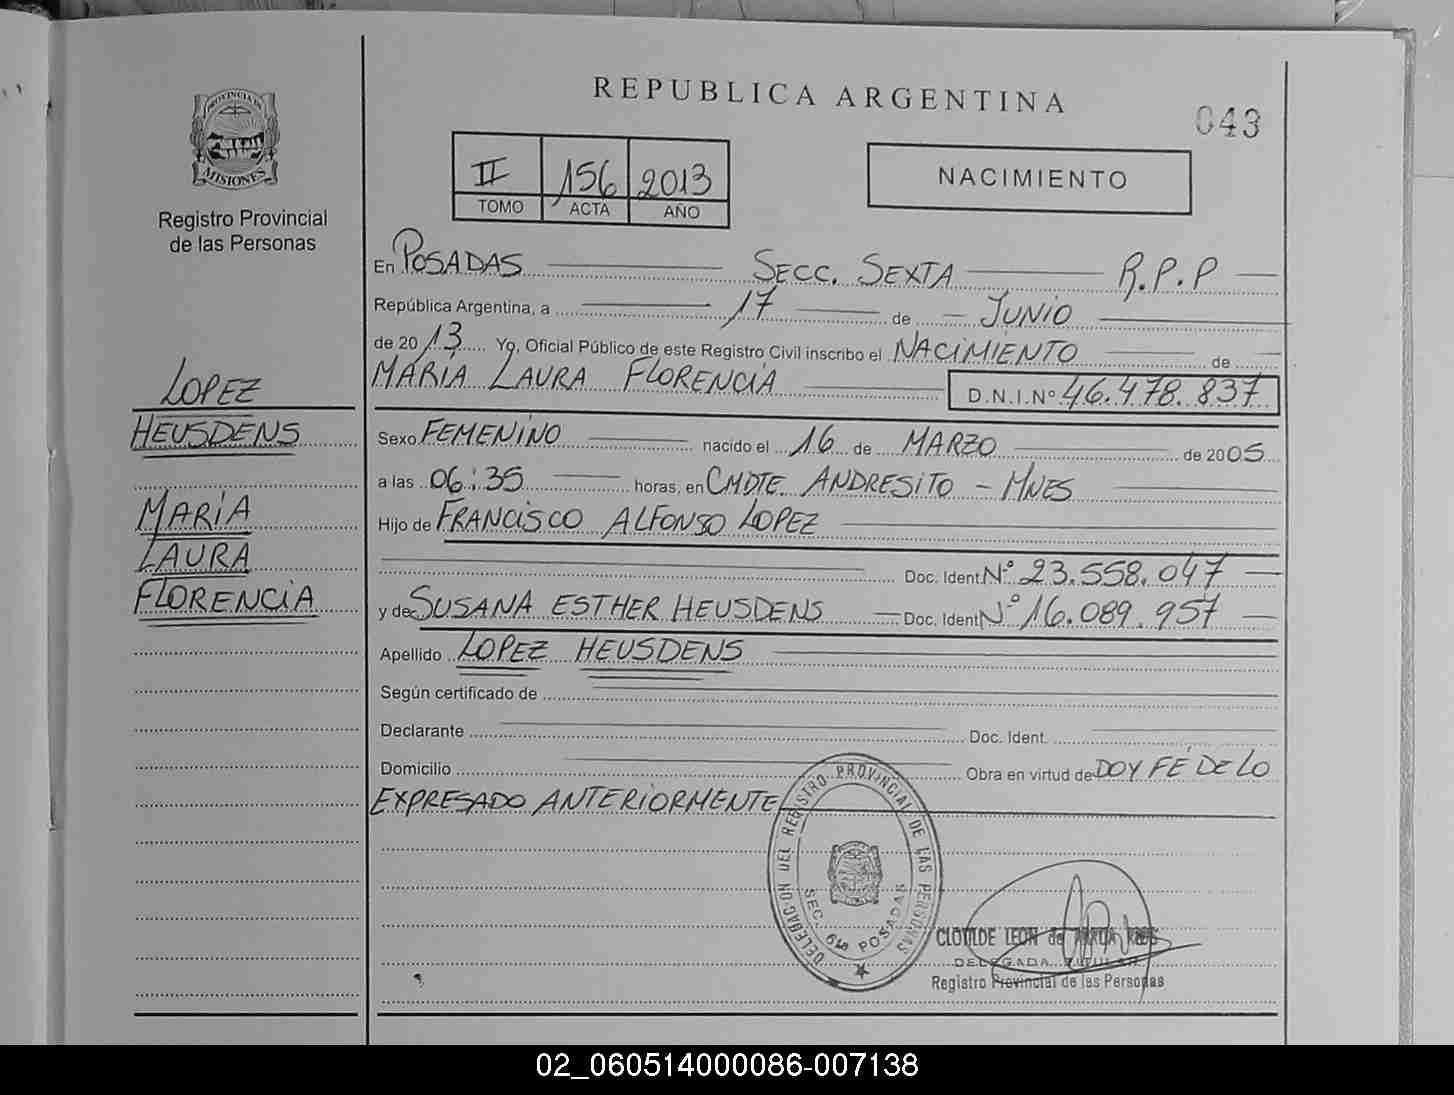 REPUBLICA ARGENTINA
043
PROVINCIA DE
MISIONES
Registro Provincial
de las Personas
II 156 2013
TOMO ACTA AÑO
NACIMIENTO
En POSADAS SECC. SEXTA R.P.P
República Argentina, a 17 de JUNIO
de 2013 Yo, Oficial Público de este Registro Civil inscribo el NACIMIENTO de
MARIA LAURA FLORENCIA D.N.I.Nº 46.478.837
LOPEZ
HEUSDENS
MARIA
LAURA
FLORENCIA
Sexo FEMENINO nacido el 16 de MARZO de 2005
a las 06:35 horas, en CMDTE. ANDRESITO - MNES
Hijo de FRANCISCO ALFONSO LOPEZ
Doc. Ident. Nº 23.558.047
y de SUSANA ESTHER HEUSDENS Doc. Ident. Nº 16.089.957
Apellido LOPEZ HEUSDENS
Según certificado de
Declarante Doc. Ident.
Domicilio Obra en virtud de DOY FÉ DE LO
EXPRESADO ANTERIORMENTE
DELEGACION DEL REGISTRO PROVINCIAL DE LAS PERSONAS
SEC. 6ta POSADAS
CLOTILDE LEON de
DELEGADA TITULAR
Registro Provincial de las Personas
02_060514000086-007138